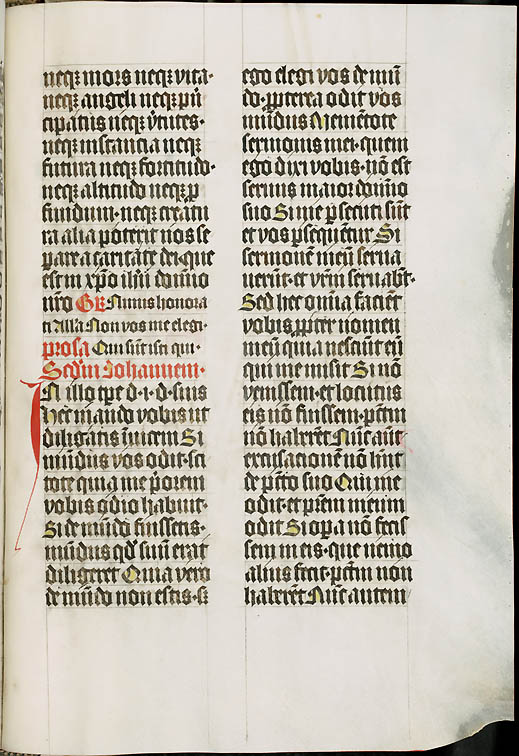 neqꝫ mors neqꝫ vita·
neqꝫ angeli neqꝫ pͥn
cipatus neqꝫ v̾tutes·
neqꝫ instancia neqꝫ
futura neqꝫ fortitudo·
neqꝫ altitudo neqꝫ ꝓ
fundum·neqꝫ creatu
ra alia poterit nos se
parare a caritate dei·que
est in xp̄o ih̄u domino
nr̄o Gr̄ Nimis honora
ti Alla Non vos me elegi·
prosa Qui sunt isti qui·
Scd̄m Johannem·
In illo tꝑe d·i·d·suis
Hec mando vobis ut
diligatis īnicem Si
mūdus vos odit·sci
tote quia me p̄orem
vobis odio habuit·
Si de mūdo fuissetis·
mūdus qd̄ suū erat
diligeret Quia vero
de mūdo non estis·s̄
ego elegi vos de mū
do·ꝓpterea odit vos
mūdus Mementote
sermonis mei·quem
ego dixi vobis·nō est
seruus maior domīo
suo Si me ꝑsecuti sūt
et vos ꝑsequēt̄ur Si
sermonē meū serua
uerūt·et vr̄m seruabt̄·
Sed hec om̄ia faciēt
vobis ꝓpter nomen
meū quia nesciūt eū
qui me misit Si nō
venissem·et locutus
eis nō fuissem·pctm̄
nō haberēt Nūc aūt
excusacionē nō hn̄t
de pctō suo Qui me
odit·et pr̄em meum
odit Si opa nō fecis
sem in eis·que nemo
alius fecit·pctm̄ non
haberēt Nūc autem